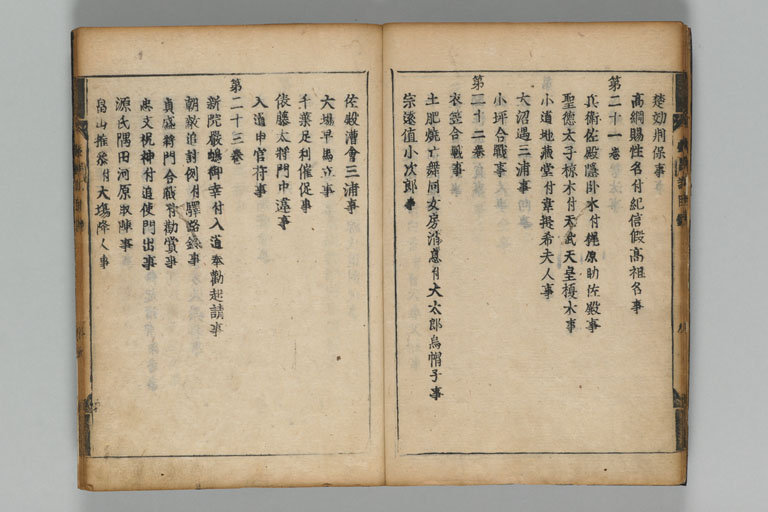 楚効荊保事
高綱賜姓名付紀信假高祖名事
第二十一巻
兵衛佐殿隱臥木付梶原助佐殿事
聖徳太子椋木付天武天皇榎木事
小道地藏堂付韋提希夫人事
大沼遇三浦事
小坪合戰事
第二十二巻
衣笠合戰事
土肥焼亡舞同女房消息付大太郎烏帽子事
宗遠値小次郎事
佐殿漕會三浦事
大場早馬立事
千葉足利催促事
俵藤太将門中違事
入道申官符事
第二十三巻
新院嚴嶋御幸付入道奉勸起請事
朝敵追討例付驛路鈴事
貞盛将門合戰付勸賞事
忠文祝神付追使門出事
源氏隅田河原取陣事
畠山推参付大場降人事